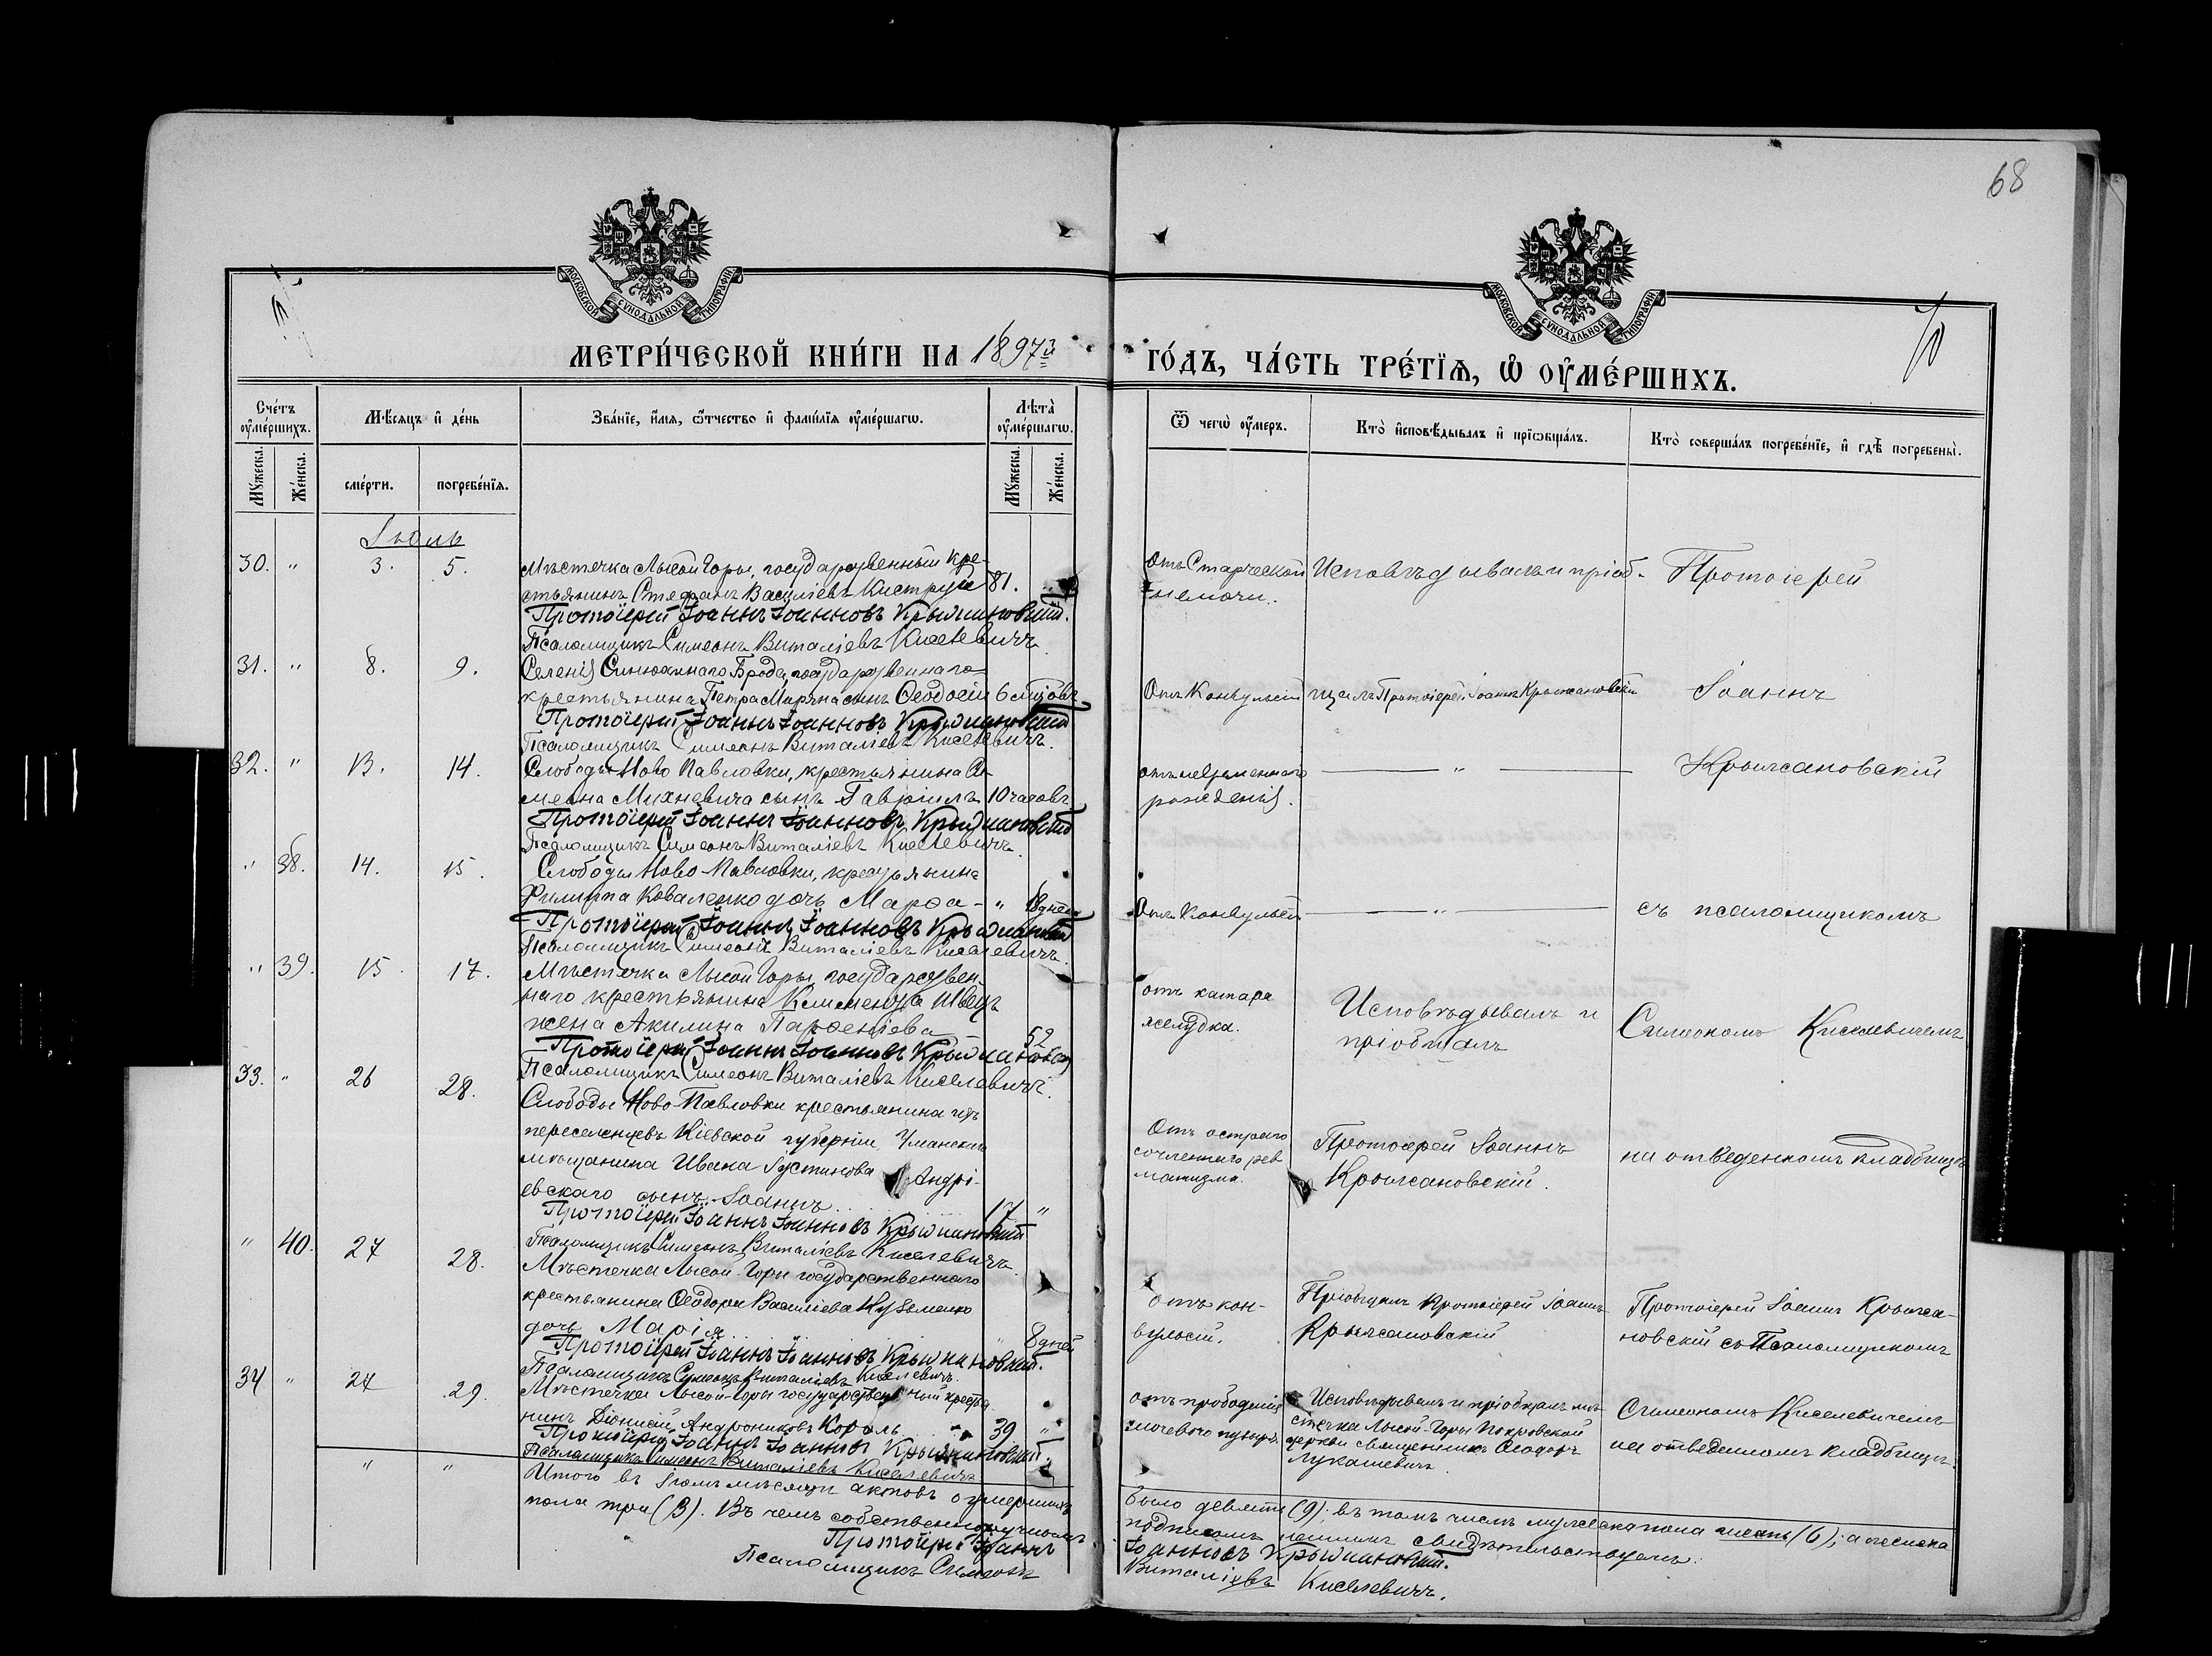 68
МОСКОВСКОЙ СѴНОДАЛЬНОЙ ТИПОГРАФІИ
МОСКОВСКОЙ СѴНОДАЛЬНОЙ ТИПОГРАФІИ
МЕТРИ́ЧЕСКОЙ КНИ́ГИ НА 1897й ГО́ДЪ, ЧА́СТЬ ТРЕ́ТЇѦ, Ѡ ОУМЕ́РШИХЪ.
Сче́тъ оумéршихъ.
Мѣ́сяцъ и де́нь
Зва́нїе, и́мя, ѻ́тчество и фами́лїя оумéршагѡ.
Лѣта̀ оумéршагѡ.
Ѿ чегѡ̀ оу́меръ.
Кто̀ исповѣ́дывалъ и прїѡбща́лъ.
Кто̀ соверша́лъ погребе́нїе, и гдѣ̀ погребены̀.
Му́жеска.
Же́нска.
сме́рти.
погребе́нїя.
Му́жеска.
Же́нска.
Іюль
30. " 3. 5. Мѣстечка Лысой Горы, государственный кре-
стьянинъ Стефанъ Василіевъ Киструй 81.
Протоіерей Іоаннъ Іоанновъ Крыжановскій.
Псаломщикъ Симеонъ Виталіевъ Киселевичъ
Отъ Старческой
немочи.
Исповѣдывалъ и пріоб-
Протоіерей
31. " 8. 9. Селенія Синюхинаго Брода, государственнаго
крестьянина Петра Маряна сынъ Ѳеодосій 6 мцовъ
Протоіерей Іоаннъ Іоанновъ Крыжановскій
Псаломщикъ Симеонъ Виталіевъ Киселевичъ.
Отъ Конвульсій
щалъ Протоіерей Іоаннъ Крыжановскій
Іоаннъ
32. " 13. 14. Слободы Ново Павловки, крестьянина Си-
меона Михневича сынъ Гавріилъ 10 часовъ
Протоіерей Іоаннъ Іоанновъ Крыжановскій
Псаломщикъ Симеонъ Виталіевъ Киселевичъ.
рожденія.
"
Крыжановскій
" 38. 14. 15. Слободы Ново-Павловки, крестьянина
Филиппа Коваленко дочь Марѳа - " 18 дней
Протоіерей Іоаннъ Іоанновъ Крыжановскій
Псаломщикъ Симеонъ Виталіевъ Киселевичъ.
Отъ Конвульсій
"
съ псаломщикомъ
" 39. 15. 17. Мѣстечка Лысой Горы, государствен-
наго крестьянина Климента Швецъ
жена Акилина Парѳеніева 52
Протоіерей Іоаннъ Іоанновъ Крыжановскій
Псаломщикъ Симеонъ Виталіевъ Киселевичъ.
отъ катара
желудка.
Исповѣдывалъ и
пріобщалъ
Симеономъ Киселевичемъ
33. " 26 28. Слободы Ново-Павловки крестьянина изъ
переселенцевъ Кіевской губерніи, Уманскаго
мѣщанина Ивана Іустинова Андрі-
евскаго сынъ Іоаннъ 17 "
Протоіерей Іоаннъ Іоанновъ Крыжановскій
Псаломщикъ Симеонъ Виталіевъ Киселевичъ.
Отъ остраго
сочленнаго рев
матизма.
Протоіерей Іоаннъ
Крыжановскій.
на отведенномъ кладбищѣ
" 40. 27 28. Мѣстечка Лысой-Горы государственнаго
крестьянина Ѳеодора Василіева Кузьменко
дочь Марія " 8 дней
Протоіерей Іоаннъ Іоанновъ Крыжановскій.
Псаломщикъ Симеонъ Виталіевъ Киселевичъ.
отъ кон-
вульсій.
Пріобщалъ Протоіерей Іоаннъ
Крыжановскій
Протоіерей Іоаннъ Крыжа-
новскій съ Псаломщикомъ
34 " 27 29. Мѣстечка Лысой-Горы государственный крестья
нинъ Діонисій Андрониковъ Король 39 "
Протоіерей Іоаннъ Іоанновъ Крыжановскій.
Псаломщикъ Симеонъ Виталіевъ Киселевичъ
отъ прободенія
мочеваго пузыря
Исповѣдывалъ и пріобщалъ мѣ-
стечка Лысой-Горы Покровской
церкви священникъ Ѳеодоръ
Лукашевичъ
Симеономъ Киселевичемъ
на отведенномъ кладбищѣ.
" " Итого въ Іюлѣ мѣсяцѣ актовъ о умершихъ было девять (9); въ томъ числѣ мужеска пола шесть (6); а женска
пола три (3). Въ чемъ собственноручнымъ подписомъ нашимъ свидѣтельствуемъ.
Протоіерей Іоаннъ Іоанновъ Крыжановскій.
Псаломщикъ Симеонъ Виталіевъ Киселевичъ.